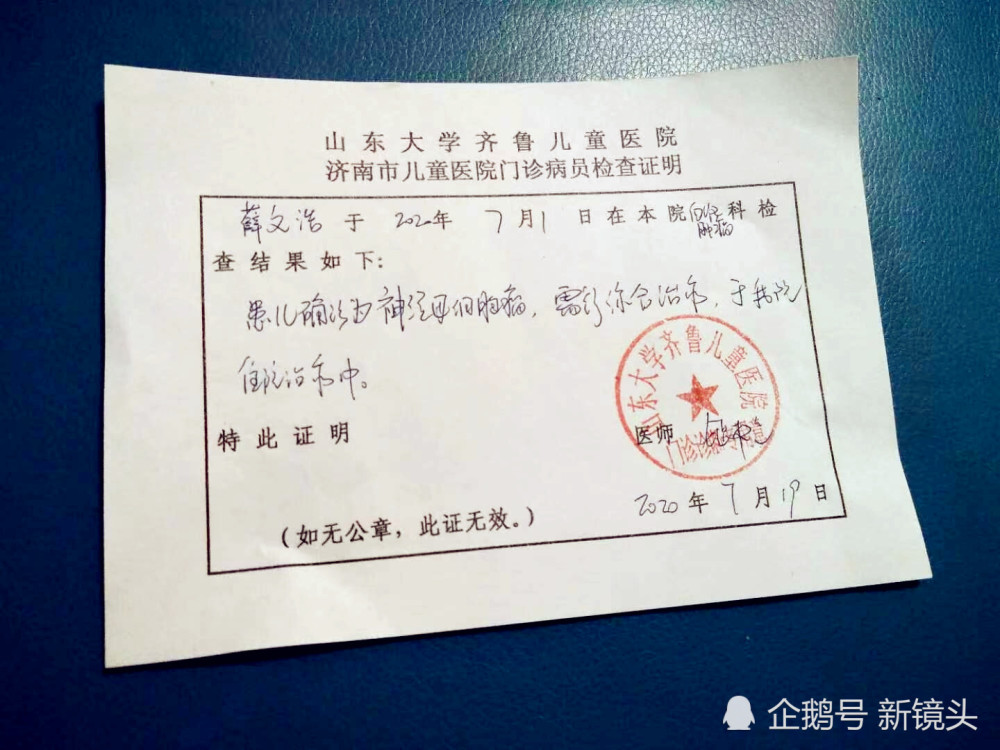 山东大学齐鲁儿童医院
济南市儿童医院门诊病员检查证明
薛文浩于2020年7月1日在本院血液肿瘤科检
查结果如下:
患儿确诊为神经母细胞瘤,需行综合治疗,于我院
住院治疗中。
特此证明
医师
2020年7月19日
(如无公章,此证无效。)
山东大学齐鲁儿童医院
门诊诊断
企鹅号 新镜头